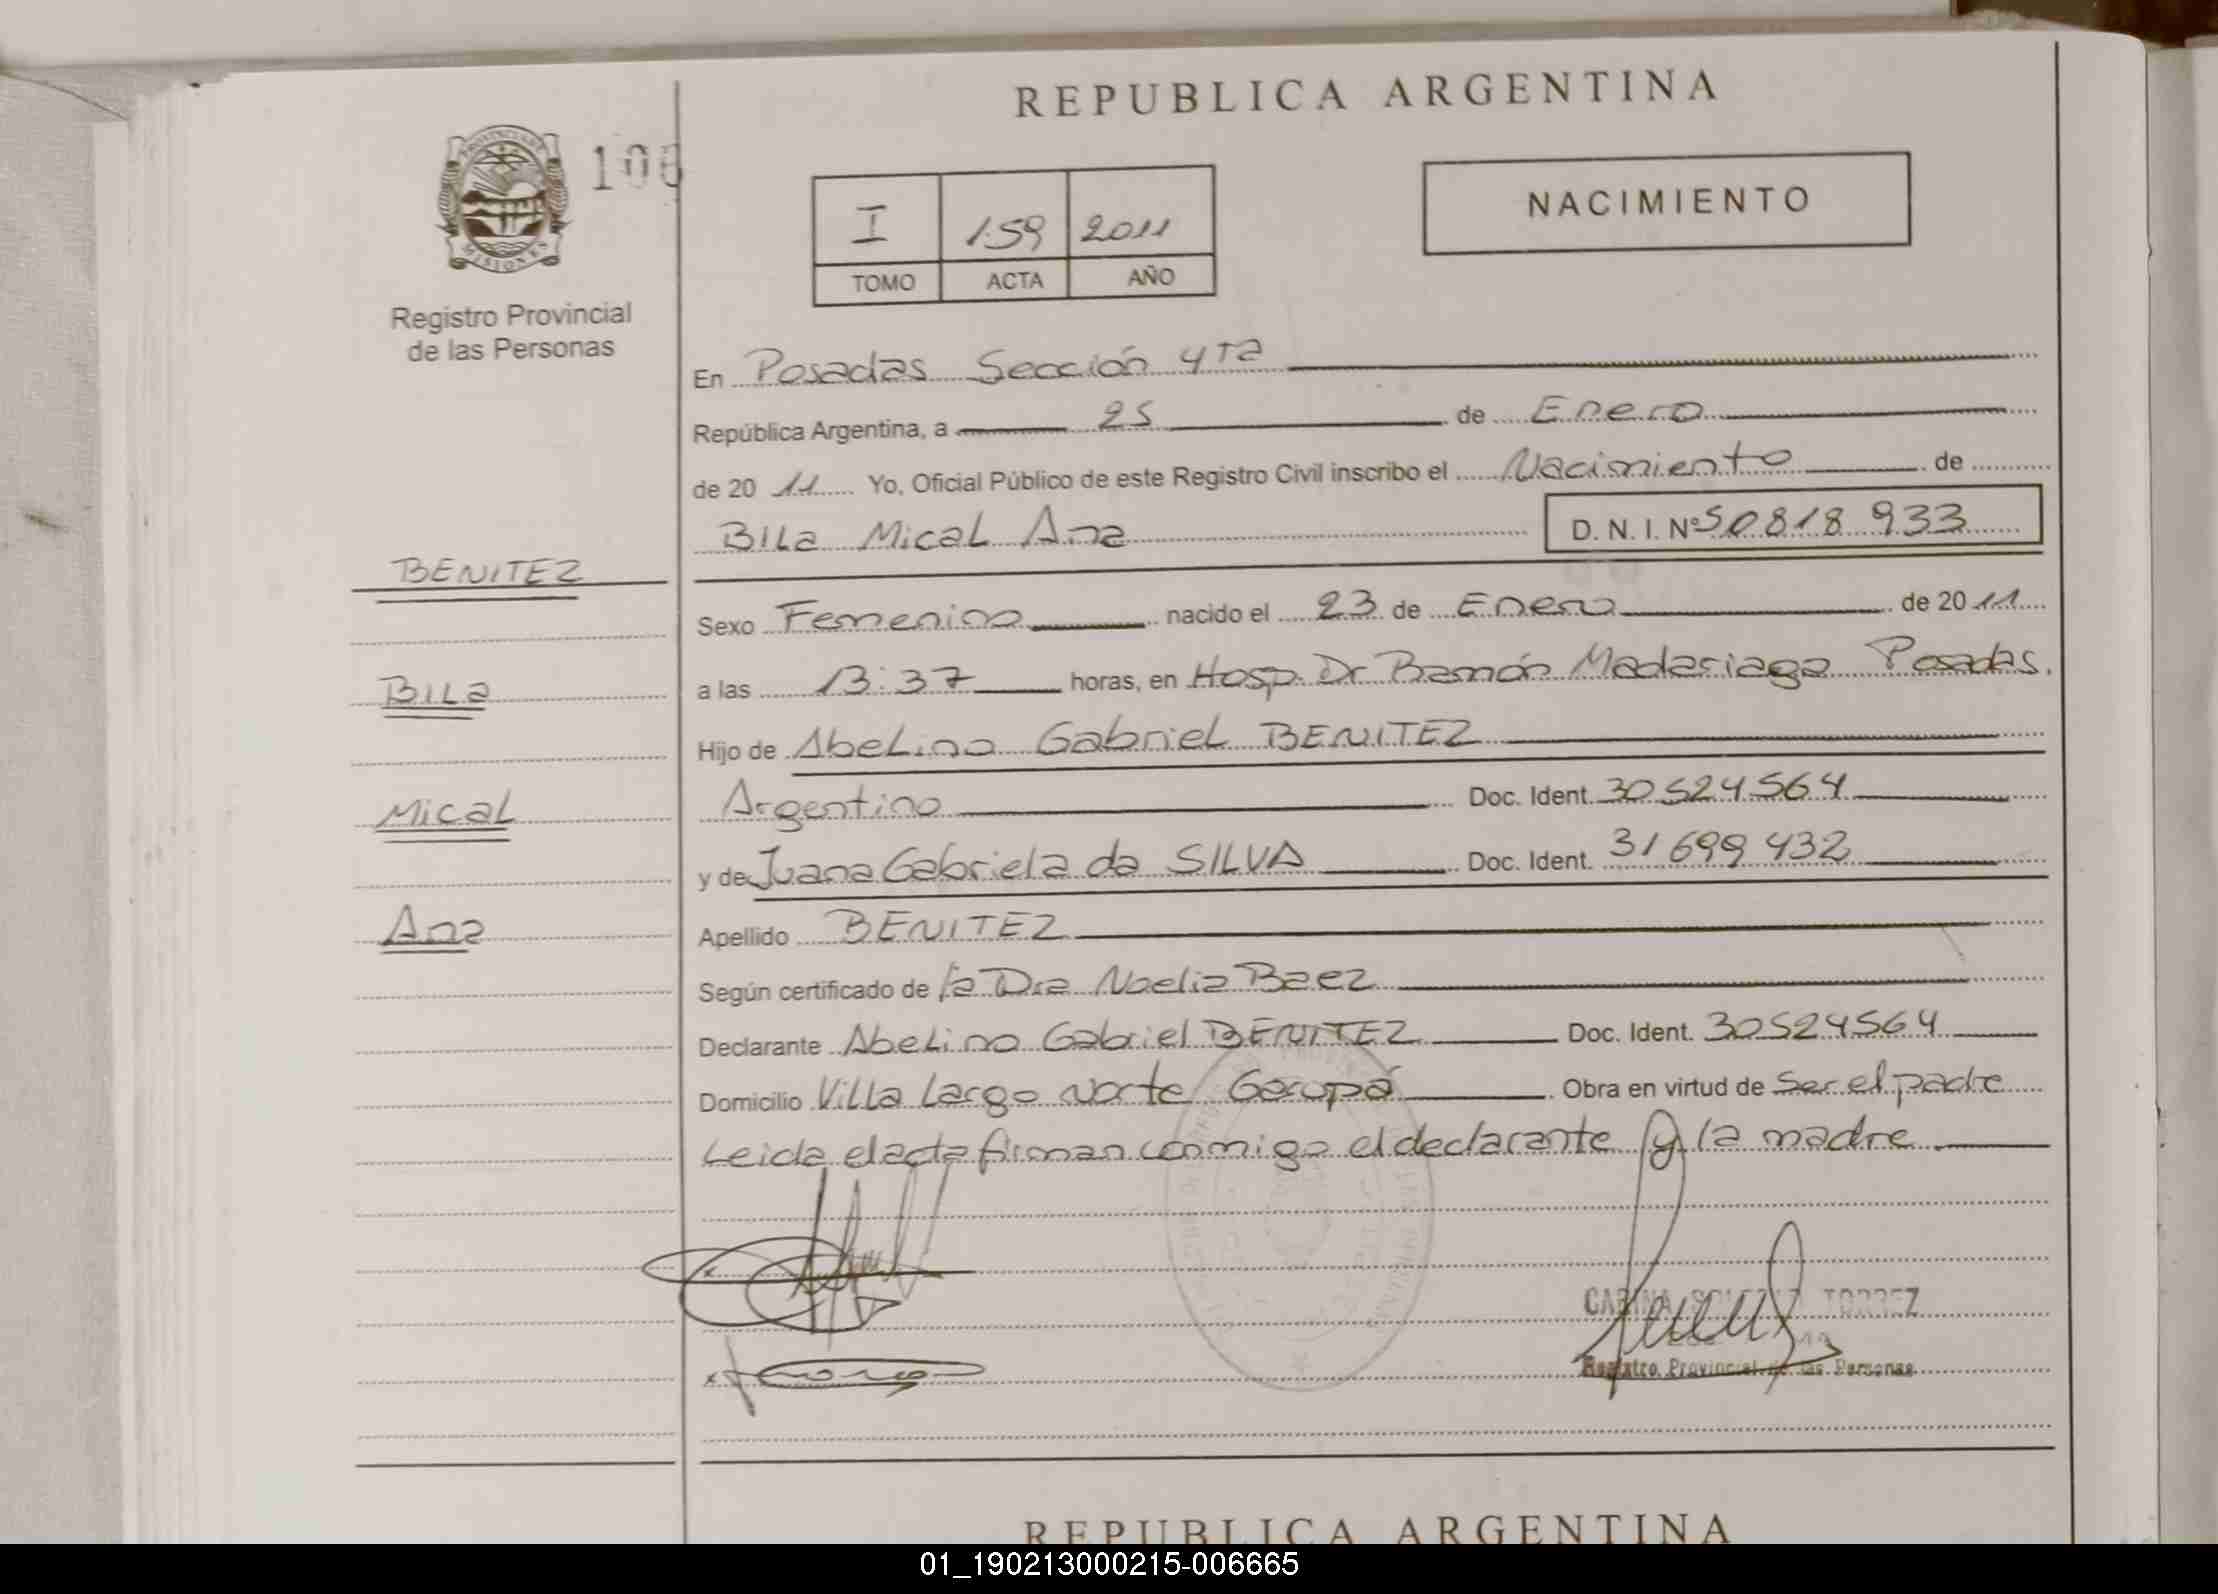 REPUBLICA ARGENTINA
PROVINCIA DE
MISIONES
106
Registro Provincial
de las Personas
I 159 2011
TOMO ACTA AÑO
NACIMIENTO
En Posadas Sección 4ta
República Argentina, a 25 de Enero
de 2011 Yo, Oficial Público de este Registro Civil inscribo el Nacimiento de
BILa Mical Ana D. N. I. Nº 50818933
BENITEZ
Sexo Femenino nacido el 23 de Enero de 2011
BILa
a las 13:37 horas, en Hosp. Dr Ramón Madariaga Posadas.
Hijo de Abelino Gabriel BENITEZ
Mical
Argentino Doc. Ident. 30524564
y de Juana Gabriela da SILVA Doc. Ident. 31699432
Ana
Apellido BENITEZ
Según certificado de la Dra Noelia Baez
Declarante Abelino Gabriel BENITEZ Doc. Ident. 30524564
Domicilio Villa Largo Norte Garupá Obra en virtud de Ser el padre
Leida el acta firman conmigo el declarante y la madre
TORREZ
Registro Provincial de las Personas
REPUBLICA ARGENTINA
01_190213000215-006665